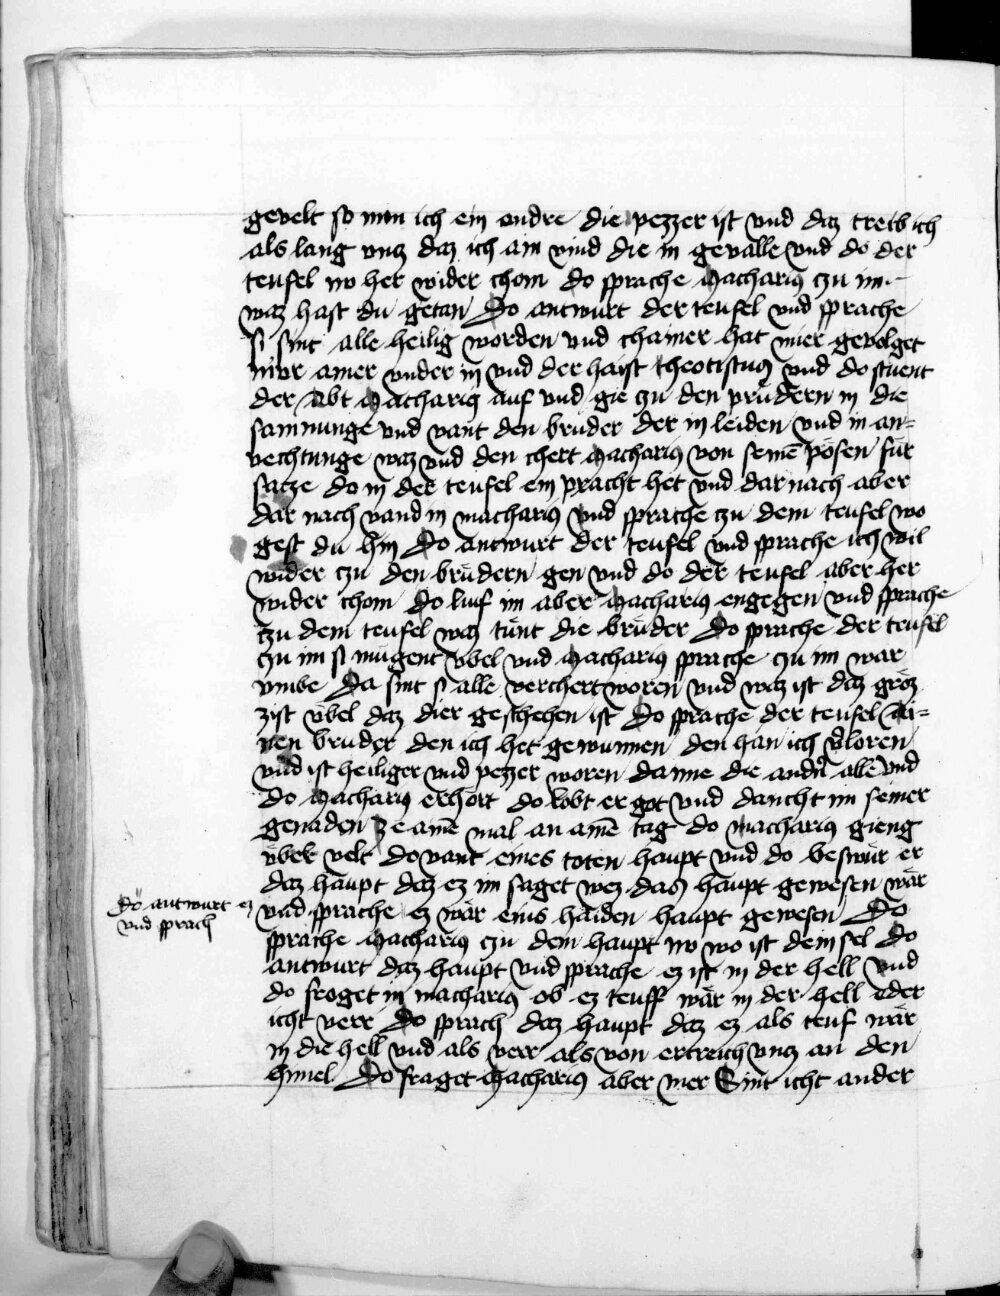 gevelt so nim ich ein andre die pezzer ist vnd daz treib ich
als lang vntz daz ich ain vind die in gevalle vnd do der
teufel no her wider chom do sprache Macharius czu im
waz hast du getan Do antwurt der teufel vnd sprache
si sint alle heilig worden vnd chainer hat mier gevolget
niur ainer vnder in vnd der haist theotistus vnd do stuent
der Abt Macharius auf vnd gie czu den prüdern in die
samnunge vnd vant den bruder der in leiden vnd in an=
vechtunge waz vnd den chert Macharius von seinē pösen für
satze do in der teufel ein pracht het vnd dar nach aber
dar nach vand in macharius vnd sprache czu dem teufel wo
gest du hin Do antwurt der teufel vnd sprache ich wil
wider czu den brüdern gen vnd do der teufel aber her
wider chom do luif im aber Macharius engegen vnd sprache
czu dem teufel waz tünt die brüder Do sprache der teufel
czu im si mugent übel vnd Macharius sprache czu im war
vmbe Da sint si alle verchert woren vnd waz ist daz gröz
zist übel daz dier geschehen ist Do sprache der teufel Ai=
nen bruder den ich het gewunnen den han ich vloren
vnd ist heiliger vnd pezzer woren danne die andn̄ alle vnd
do Macharius erhört do lobt er got vnd dancht im seiner
genaden Ze ainē mal an ainē tag do macharius gieng
über velt do vant eines toten haupt vnd do beswür er
daz haupt daz ez im saget wez das haupt gewesen wär
Do antwurt ez
vnd sprach
vnd sprache ez wär eins haiden haupt gewesen Do
sprache Macharius czu dem haupt no wo ist dein sel Do
antwurt daz haupt vnd sprache ez ist in der hell vnd
do froget in macharius ob ez teuff wär in der hell oder
icht verr Do sprach daz haupt daz ez als teuf wär
in die hell vnd als verr als von ertreich vntz an den
himel Do fraget Macharius aber mer Sint icht ander